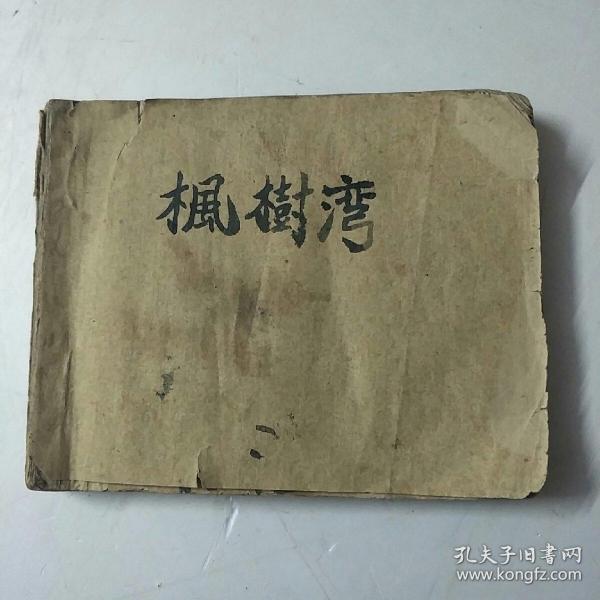 楓樹湾
孔夫子旧書网
www.kongfz.com